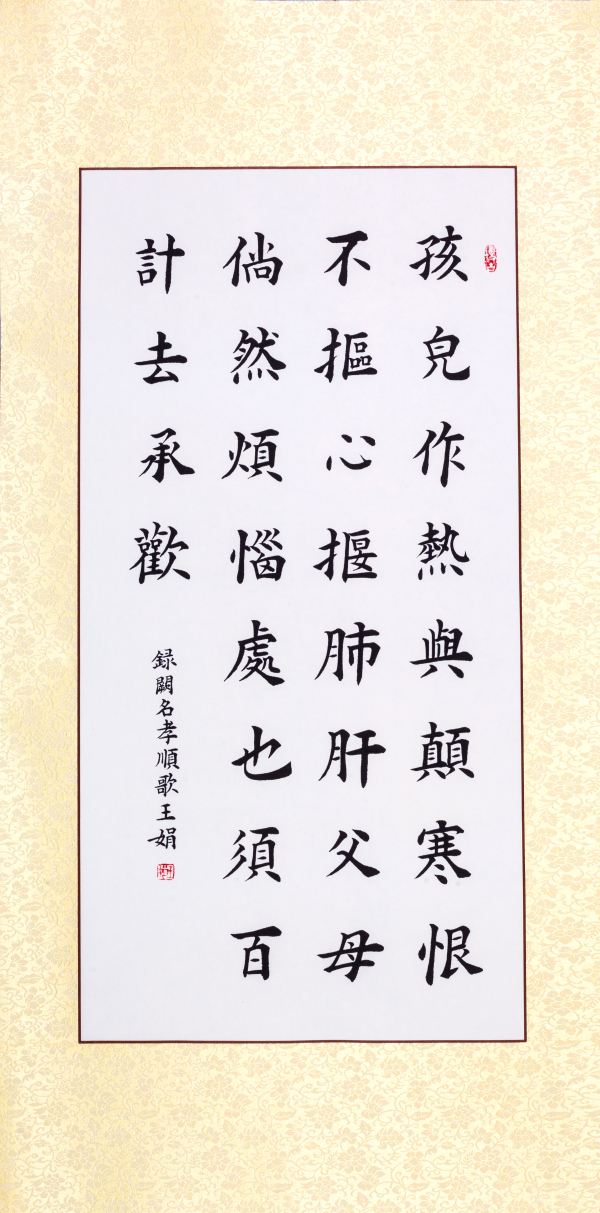 孩皃作熱與顛寒恨
不摳心揠肺肝父母
倘然煩惱處也須百
計去承歡
録闕名孝順歌王娟